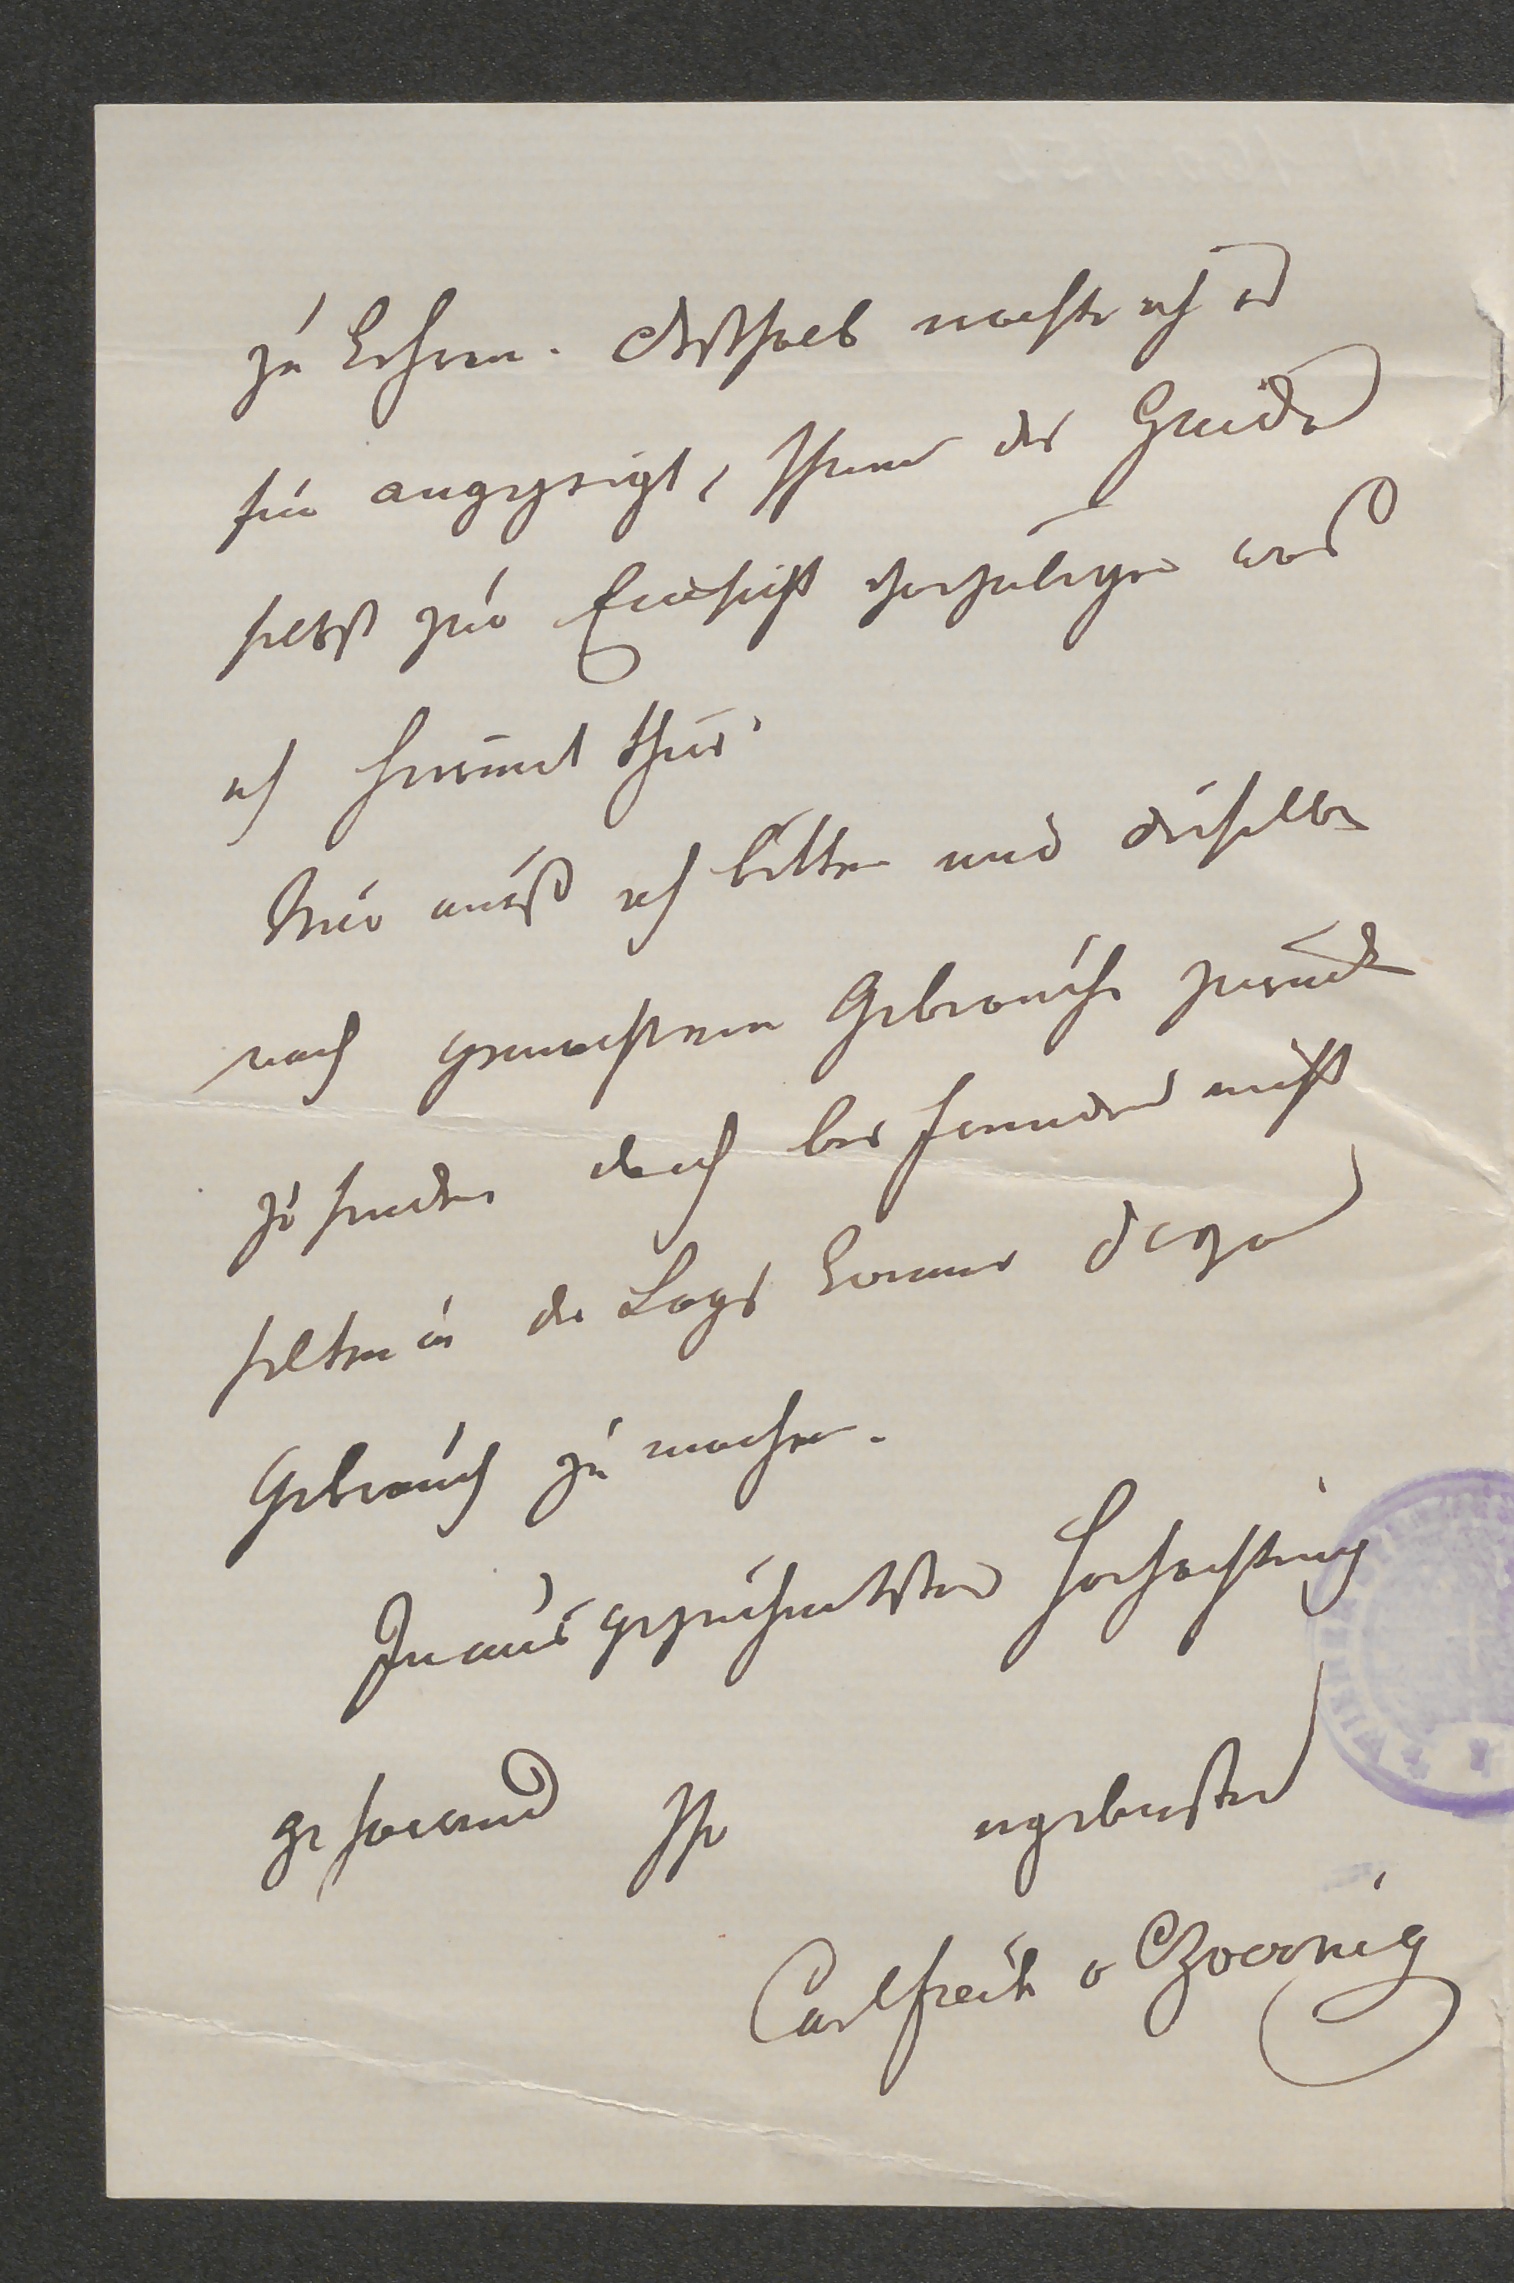 zu kehren. Deßhalb machte ich es
für angezeigt, Ihnen der Guide
selbst zur Einsicht vorzulegen was
ich hiemit thue.
Nur muß ich bitten mir dieselbe
nach gemachtem Gebrauche zurück
zu senden da ich bei Fremden nicht
selten in die Lage komme dazu
Gebrauch zu machen.
In ausgezeichnetster Hochachtung
geharrend Ihr ergebenster
Carl Freih v Czoernig
WIENER